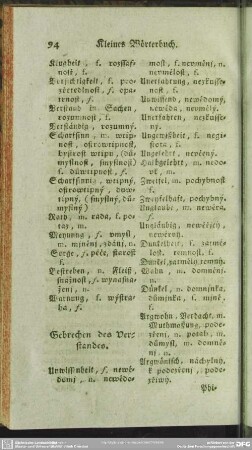 94 Kleines Wörterbuch.
Klugheit, f. rozssaf-
nost, f.
Vorsichtigkeit, f. pro-
zřetedlnost, f. opa-
trnost, f.
Verstand in Sachen,
rozumnost, f.
Verständig, rozumný.
Scharfsinn, m. wtip-
nost, ostrowtipnost,
bystrost wtipu, (dů-
myslnost, smyslnost)
f. důwtipnost, f.
Scharfsinnig, wtipný,
ostrowtipný, důw-
tipný, (smyslný, dů-
myslný)
Rath, m. rada, f. po-
rady, m.
Meynung, f. smysl,
m. mjnění, zdání, n.
Sorge, f. péče, starost
f.
Bestreben, n. Fleiß,
snažnost, f. wynasna-
žení, n.
Warnung, f. wýstra-
ha, f.
Gebrechen des Ver-
standes.
Unwissenheit, f. newě-
domj, n. newědo-
most, f. neuměnj, n.
neumělost, f.
Unerfahrung, nezkusse-
nost, f.
Unwissend, newědomý,
newěda, neumělý.
Unerfahren, nezkusse-
ný.
Ungewißheit, f. negis-
tota, f.
Ungelehrt, neučený.
Halbgelehrt, m. nedo-
uk, m.
Zweifel, m. pochybnost
f.
Zweifelhaft, pochybný.
Unglaube, m. newěra,
f.
Ungläubig, newěřjcý,
newěrný.
Dunkelheit, f. zatmě-
lost, temnost, f.
Dunkel, zatmělý, temný.
Wahn, m. domněnj,
n.
Dünkel, n. domnjnka,
důmjnka, f. mjně,
f.
Argwohn, Verdacht, m.
Muthmaßung, pode-
zřenj, n. potah, m.
důmysl, m. domně-
nj, n.
Argwöhnisch, náchylný
k podezřenj, pode-
zřiwý.
Phi-